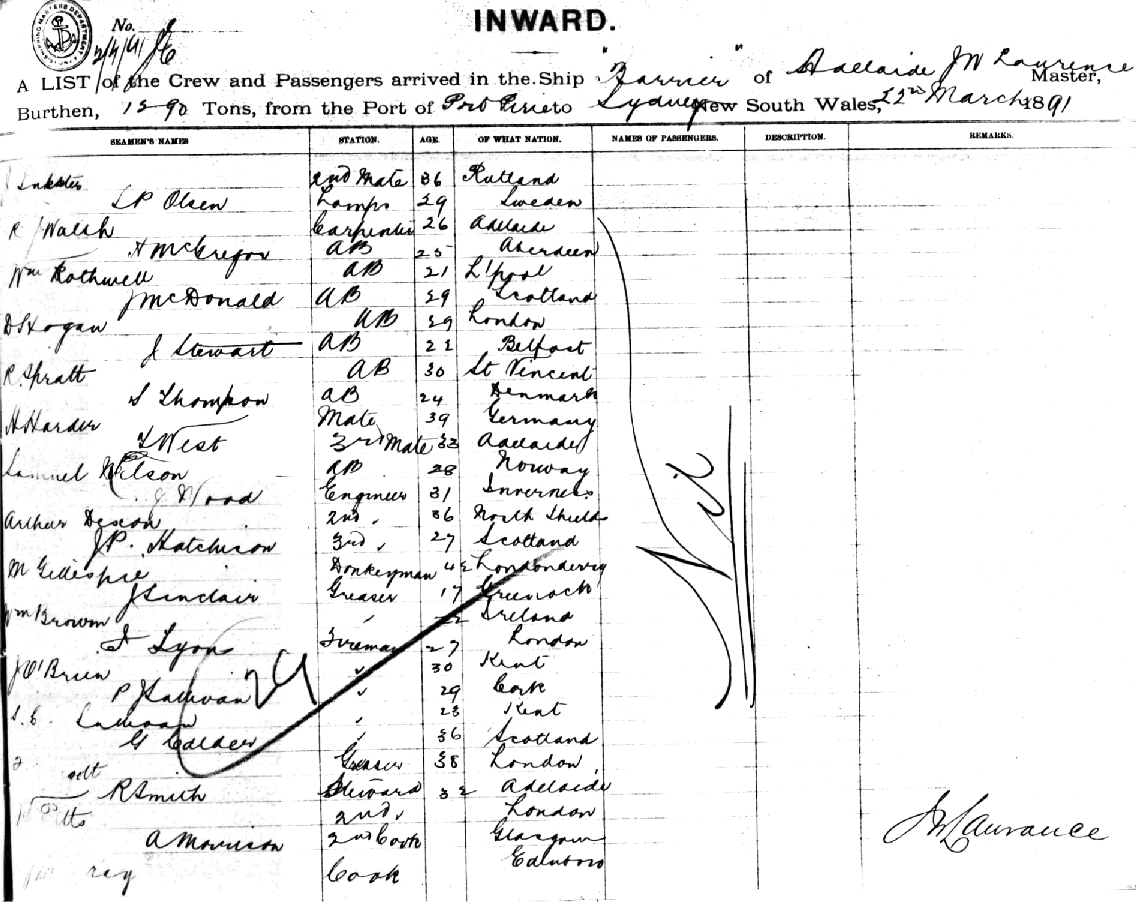 No.
2/4/91
INWARD.
A LIST of the Crew and Passengers arrived in the Ship "Farrier" of Adelaide J W Laurence Master,
Burthen, 1290 Tons, from the Port of Port Pirie to Sydney New South Wales, 22nd March 1891
SEAMEN'S NAMES STATION. AGE. OF WHAT NATION. NAMES OF PASSENGERS. DESCRIPTION. REMARKS.
Inkster 2nd Mate 36 Rutland
L P Olsen Lamps 29 Sweden
R Walsh Carpenter 26 Adelaide
H McGregor AB 25 Aberdeen
Wm Rothwell AB 21 L'pool
J McDonald AB 29 Scotland
D Hogan AB 29 London
J Stewart AB 22 Belfast
R. Spratt AB 30 St Vincent
S Thompson AB 24 Denmark
H Harder Mate 39 Germany
T West 3rd Mate 33 Adelaide
Samuel Wilson AB 28 Norway
J Wood Engineer 31 Inverness
Arthur Dixon 2nd " 36 North Shields
J.P. Hatchison 3rd " 27 Scotland
M Gillespie Donkeyman 42 Londonderry
J Sinclair Greaser 17 Greenock
Wm Browm " 22 Ireland
I Lyon Fireman 27 London
J O'Brien " 30 Kent
P Sullivan " 29 Cork
" 23 Kent
G Calder " 36 Scotland
Greaser 38 London
R Smith Steward 32 Adelaide
2nd " London
A Morrison 2nd Cook Glasgow
Cook Edinboro
Nil
29
J W Laurance